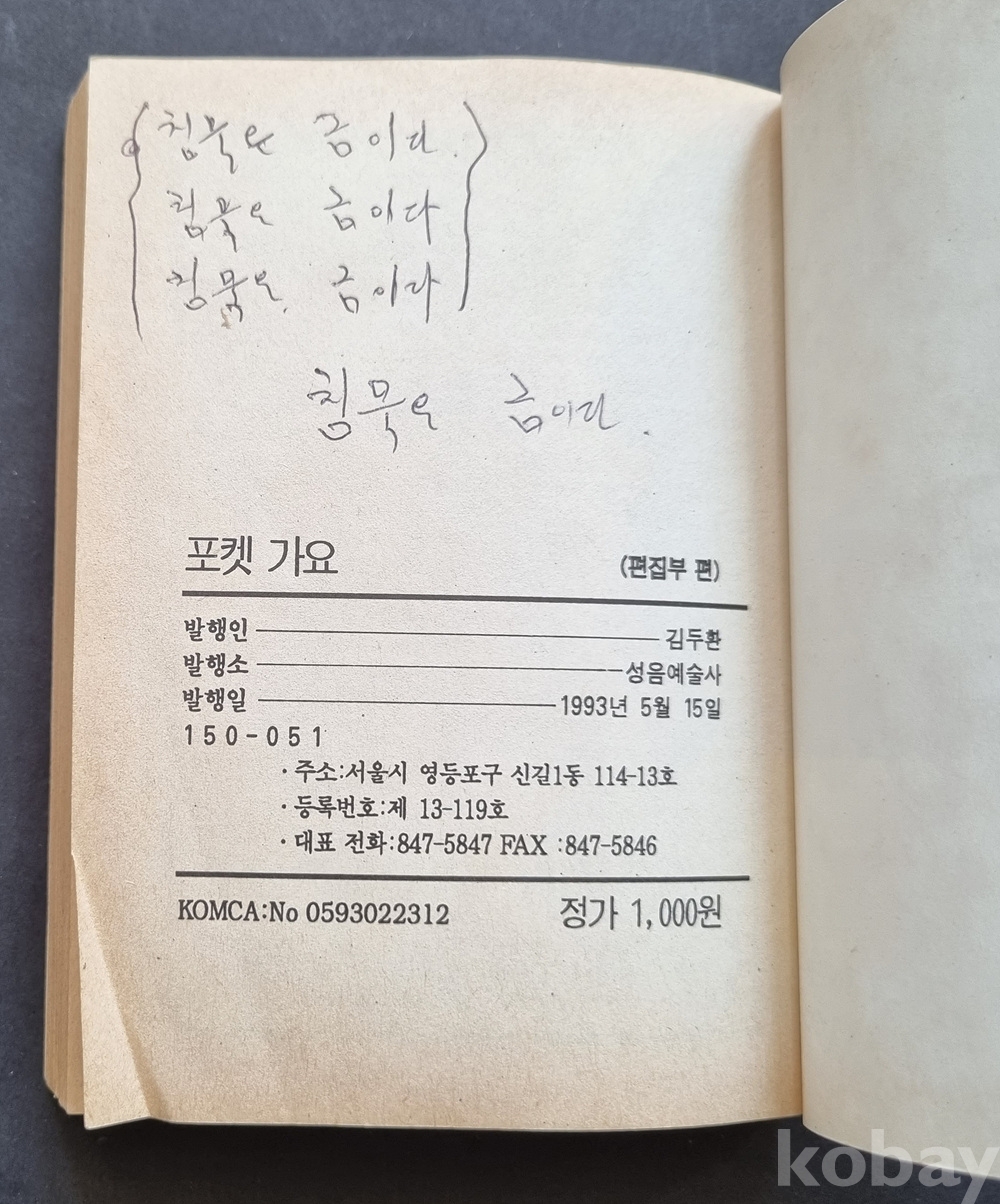 침묵은 금이다.
침묵은 금이다
침묵은. 금이다
침묵은 금이다.
포켓 가요 (편집부 편)
발행인 김두환
발행소 성음예술사
발행일 1993년 5월 15일
150-051
·주소:서울시 영등포구 신길1동 114-13호
·등록번호:제 13-119호
·대표 전화:847-5847 FAX :847-5846
KOMCA:No 0593022312 정가 1,000원
kobay